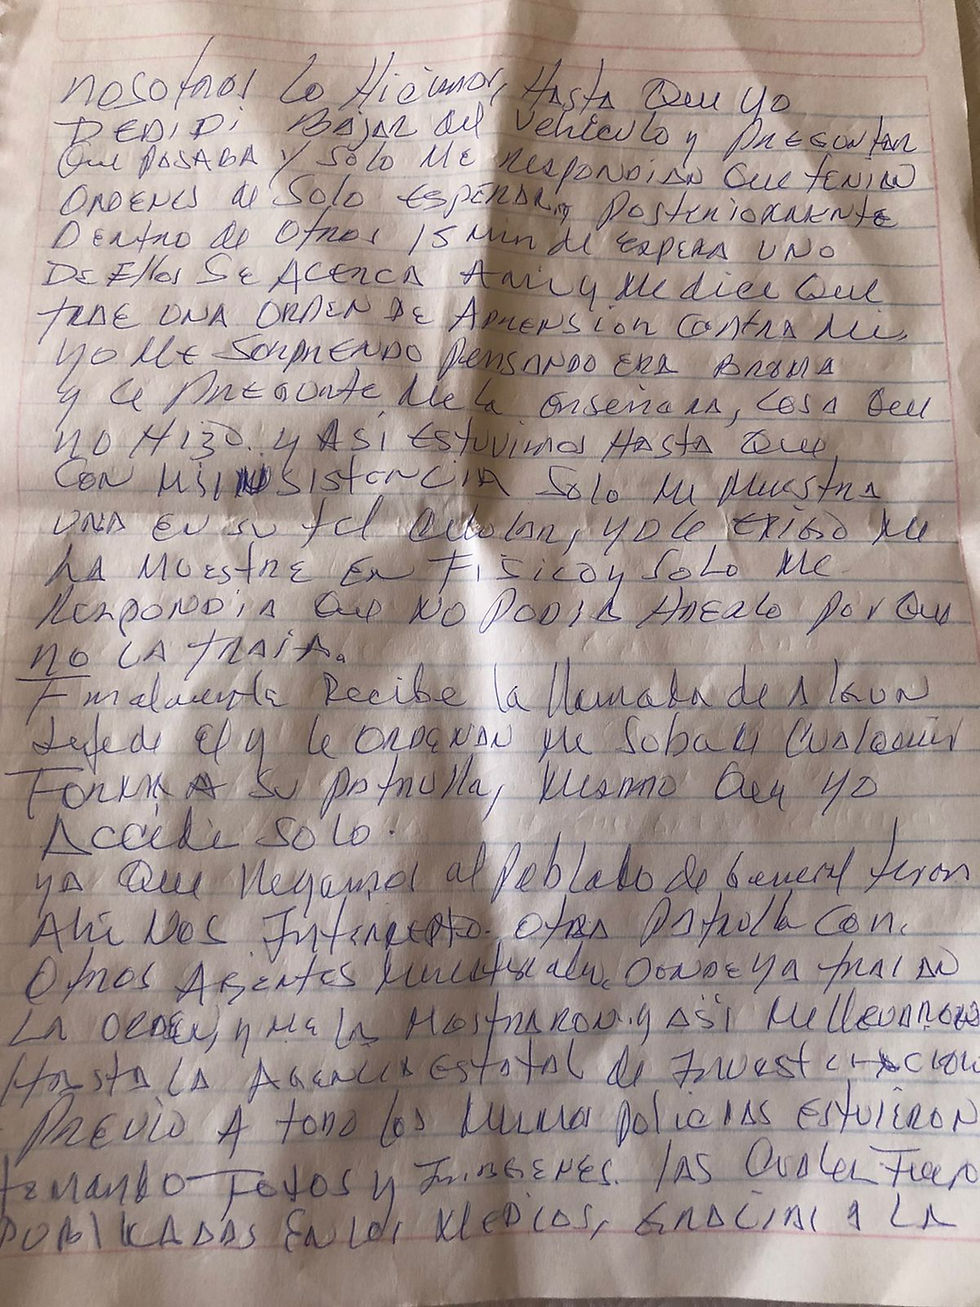 nosotros lo Hicimos, Hasta Que yo
DEDIDI BAJAR del Vehiculo y PREGUNTAR
Que PASABA y Solo Me RESPONDIAN Que tENIAN
ORDENES de Solo ESPERAR, y POSTERIORMENTE
DENtro de Otros 15 Min de ESPERA UNO
DE Ellos SE ACERCA A mi y Me dice Que
tRAE UNA ORDEN DE APRENSION CONtRA Mi,
YO ME SORPRENDO PENSANDO ERA BROMA
y le PREGUNTE Me la ENSEÑARA, COSA Que
NO HIZO. y ASi EStUVIMOS HASTA Que,
CON MI INSISTENCIA Solo Me MUESTRA
UNA EN SU tel Celular, yo le EXIGO ME
LA MUESTRE EN FISICO y SOLO ME
RESPONDIA Que NO PODIA HACERLO PORQUE
NO LA TRAIA.
Finalmente Recibe la llamada de Algun
Jefe de el y le ORDENAN Me Suba de Cualquier
FORMA A Su PAtrulla, Mismo Que YO
Accedi Solo.
ya Que llegamos al Poblado de General teran
Ahi NOS INterCEPTO OtRA PAtrulla CON
Otros AGENTES Ministeriales, DONDE YA tRAIAN
LA ORDEN, y ME LA MOSTRARON y ASi Me llEVARON
HASTA LA AGENCIA EStATAL de INVEStIGACION
PREVIO A todo los Mismos POLICIAS EStUVIERON
tomando FOTOS y IMAGENES. LAS CuALES FuERON
PUBLIKADAS EN LOS MEDIOS, GRACIAS A LA